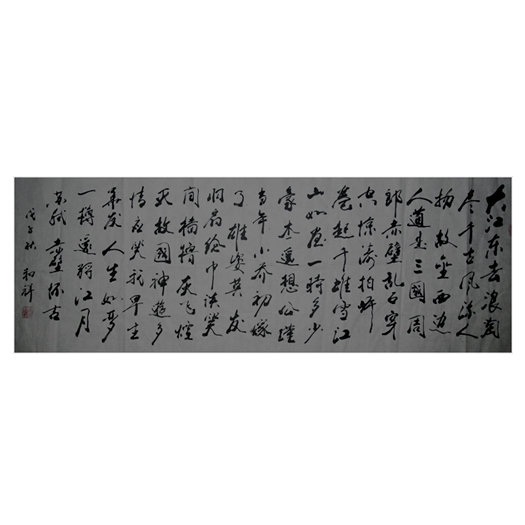 大江东去浪淘
尽千古风流人
物故垒西边
人道是三國周
郎赤壁乱石穿
空惊涛拍岸
卷起千堆雪江
山如画一時多少
豪杰遥想公瑾
当年小乔初嫁
了雄姿英发
羽扇纶巾谈笑
间樯橹灰飞煙
灭故國神遊多
情应笑我早生
华发人生如梦
一樽還酹江月
苏轼赤壁怀古
戊子秋和祥